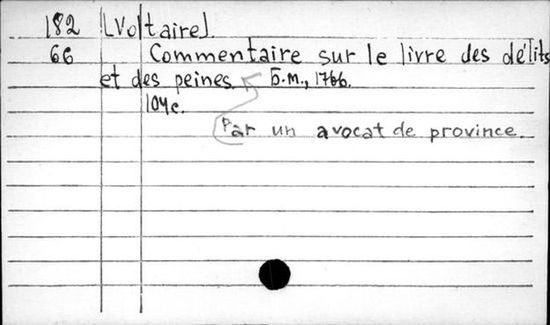 182 [Voltaire].
66 Commentaire sur le livre des délits
et des peines. Б.m., 1766.
104c.
Par un avocat de province.